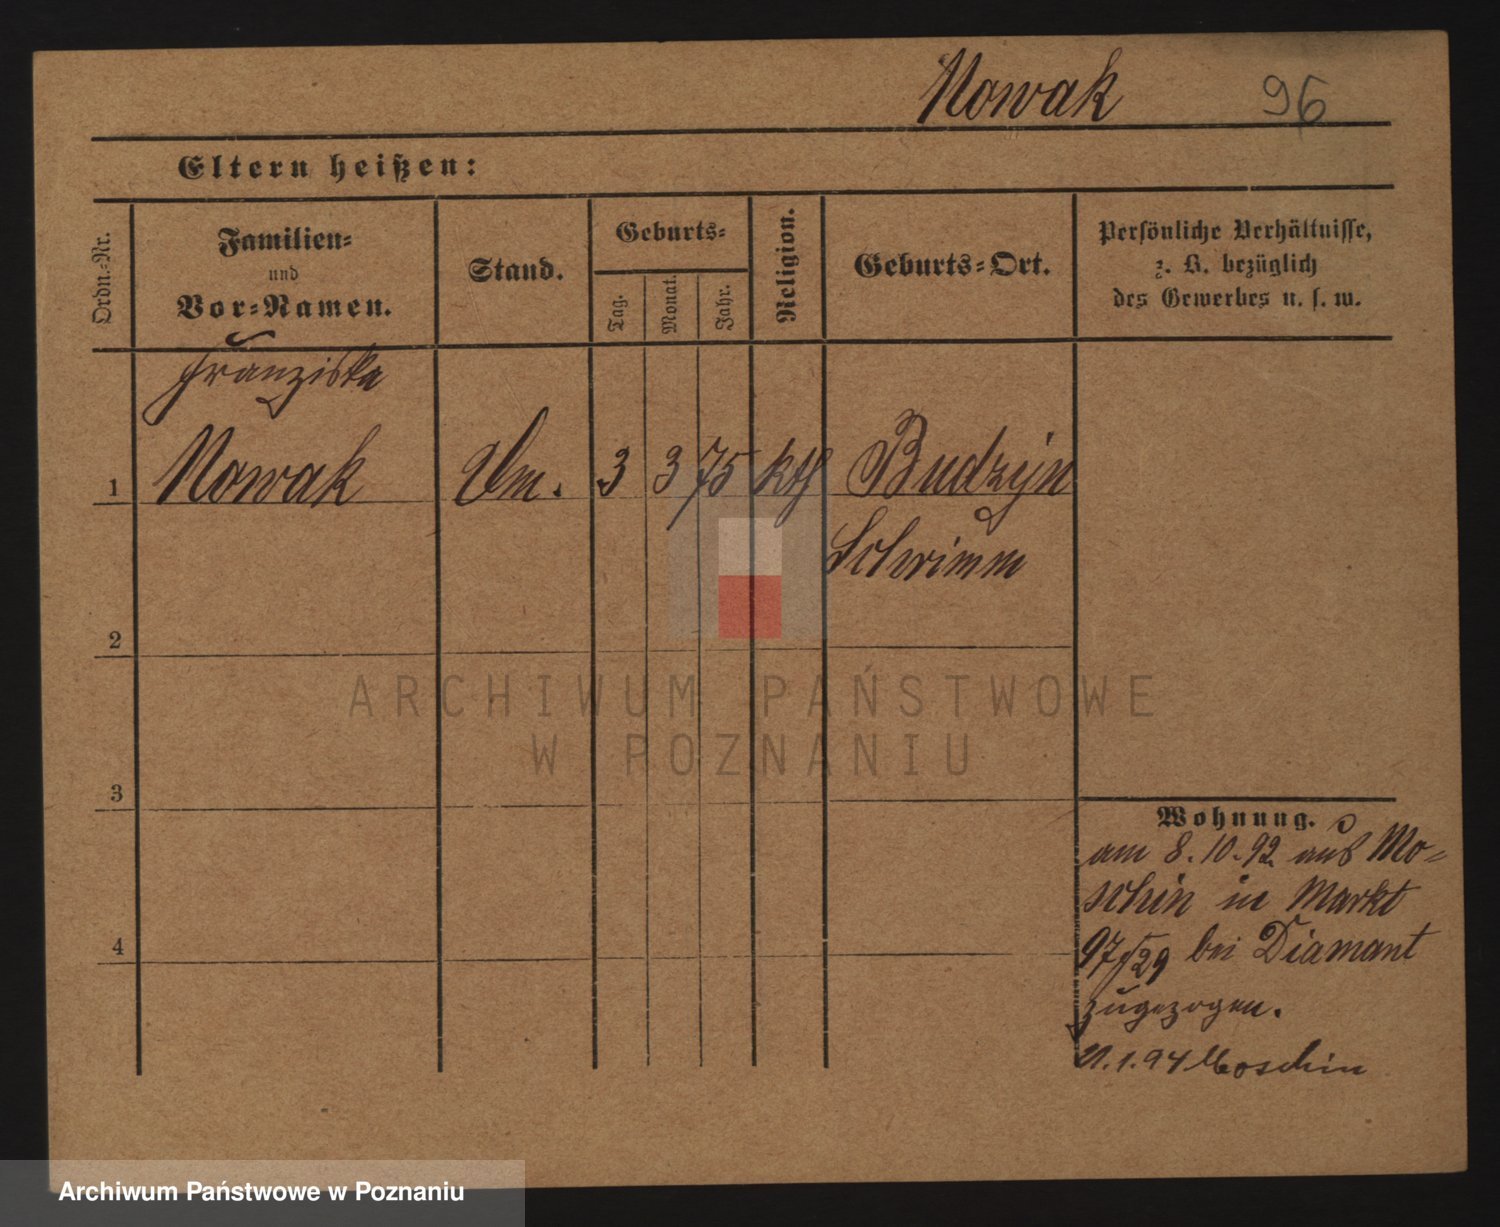 Nowak 96
Eltern heißen:
Ordn.=Nr.
Familien=
und
Vor=Namen.
Stand.
Geburts=
Tag.
Monat.
Jahr.
Religion.
Geburts=Ort.
Persönliche Verhältnisse,
z. B. bezüglich
des Gewerbes u. s. w.
Franziska
1 Nowak 3 3 75 kth Budzijn
Schrimm
2
3
4
Wohnung.
am 8.10.92 aus Mo=
schin in Markt
97/29 bei Diamant
zugezogen.
21.1.94 Moschin
ARCHIWUM PAŃSTWOWE
W POZNANIU
Archiwum Państwowe w Poznaniu